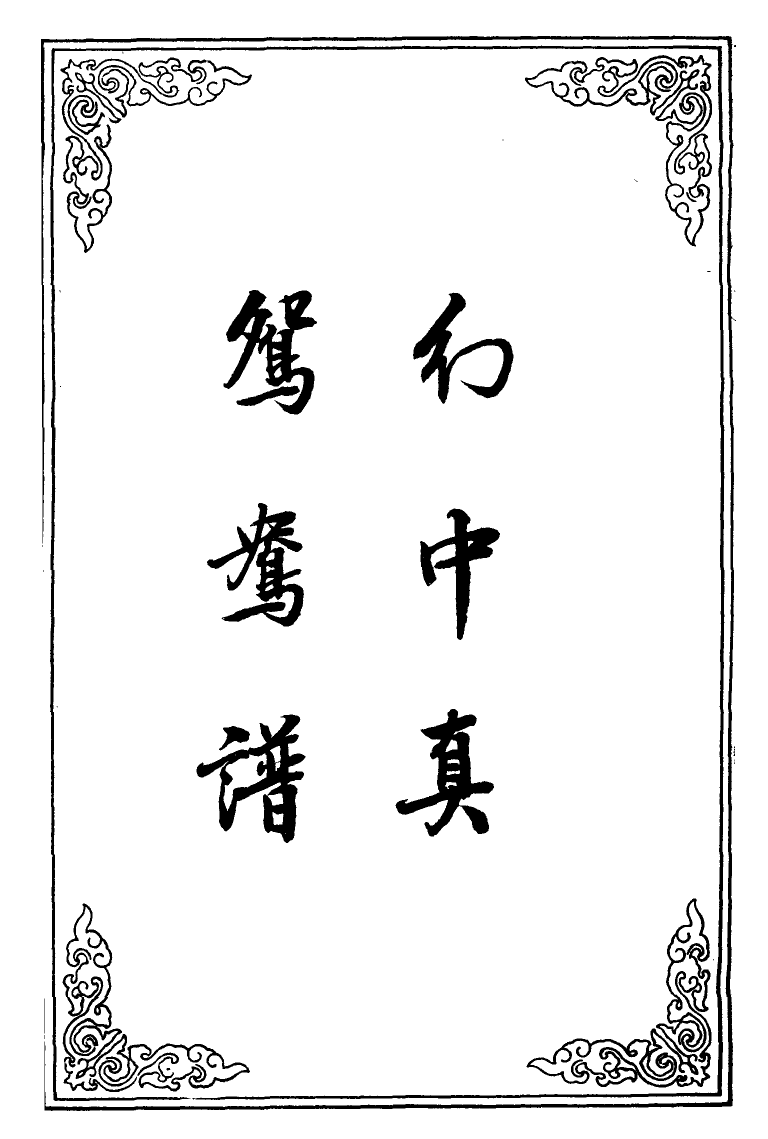 幻中真
鴛鴦譜